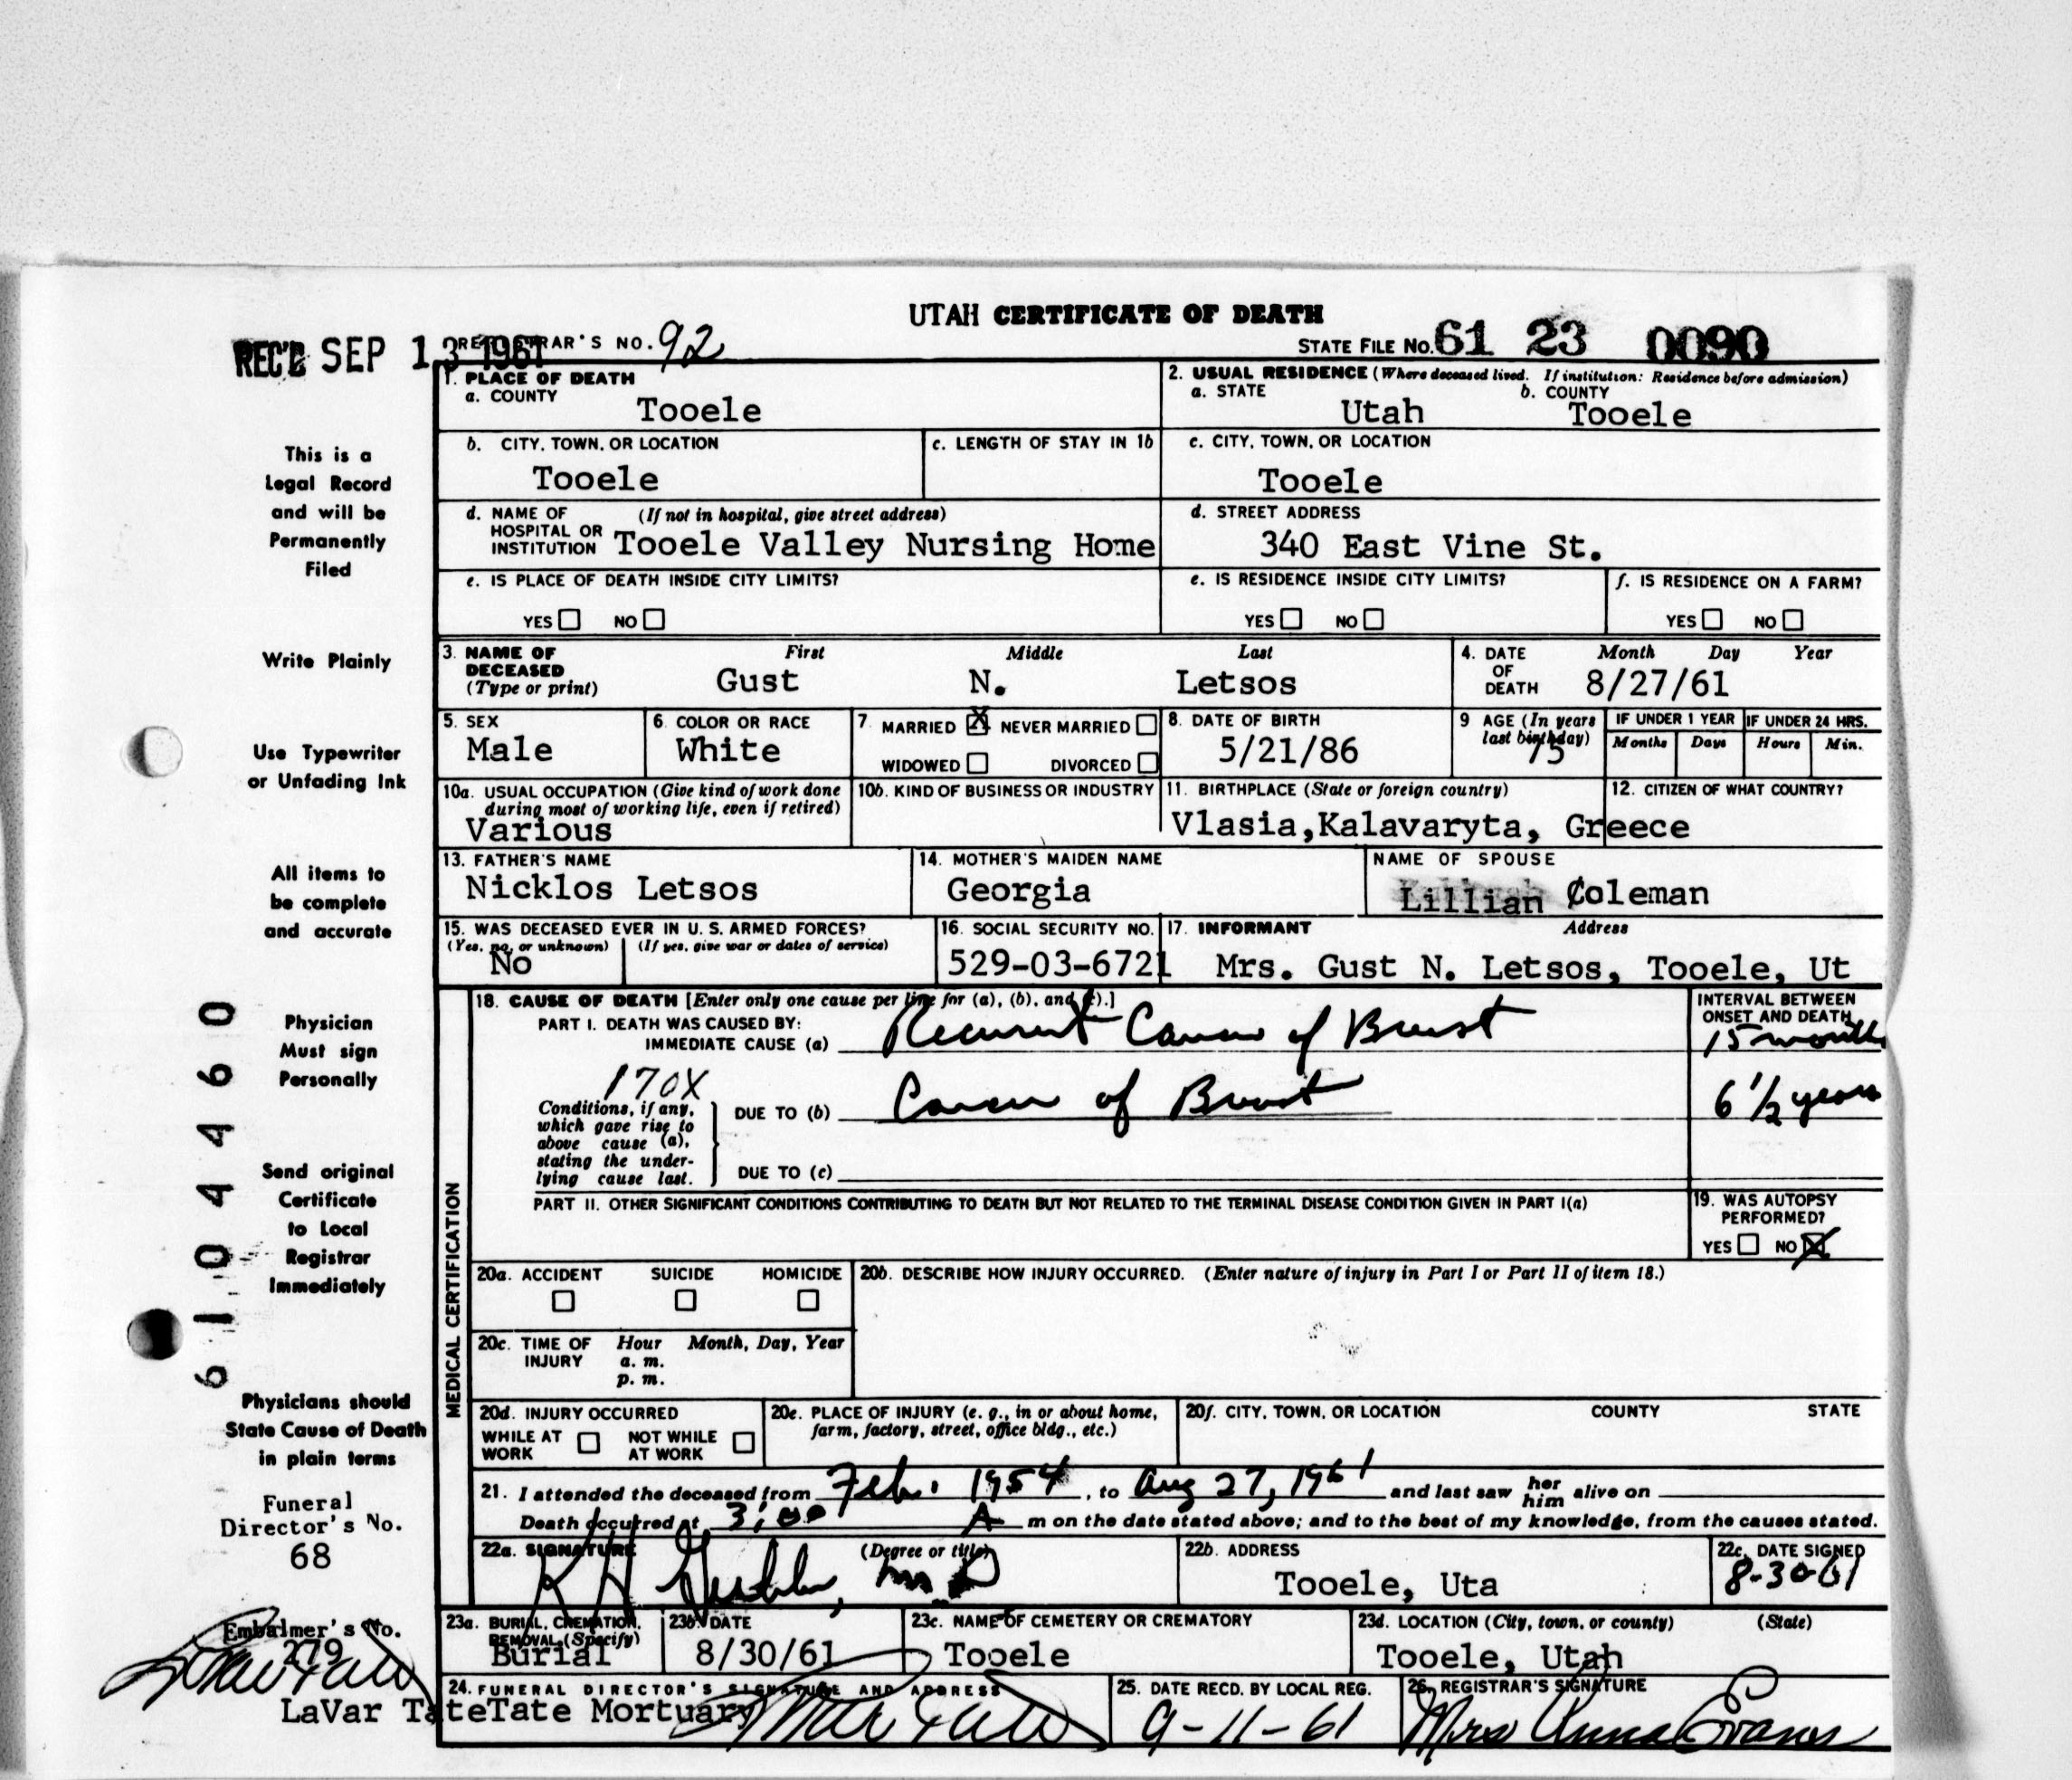 UTAH CERTIFICATE OF DEATH
REC'D SEP 13 1961 REGISTRAR'S NO. 92
STATE FILE NO. 61 23 0090
1. PLACE OF DEATH
a. COUNTY
Tooele
2. USUAL RESIDENCE (Where deceased lived. If institution: Residence before admission)
a. STATE b. COUNTY
Utah Tooele
b. CITY, TOWN, OR LOCATION
Tooele
c. LENGTH OF STAY IN 1b
c. CITY, TOWN, OR LOCATION
Tooele
d. NAME OF (If not in hospital, give street address)
HOSPITAL OR
INSTITUTION Tooele Valley Nursing Home
d. STREET ADDRESS
340 East Vine St.
e. IS PLACE OF DEATH INSIDE CITY LIMITS?
YES NO
e. IS RESIDENCE INSIDE CITY LIMITS?
YES NO
f. IS RESIDENCE ON A FARM?
YES NO
3. NAME OF DECEASED (Type or print)
First Middle Last
Gust N. Letsos
4. DATE OF DEATH
Month Day Year
8/27/61
5. SEX
Male
6. COLOR OR RACE
White
7. MARRIED X NEVER MARRIED
WIDOWED DIVORCED
8. DATE OF BIRTH
5/21/86
9 AGE (In years last birthday)
75
IF UNDER 1 YEAR IF UNDER 24 HRS.
Months Days Hours Min.
10a. USUAL OCCUPATION (Give kind of work done
during most of working life, even if retired)
Various
10b. KIND OF BUSINESS OR INDUSTRY
11. BIRTHPLACE (State or foreign country)
Vlasia,Kalavaryta, Greece
12. CITIZEN OF WHAT COUNTRY?
13. FATHER'S NAME
Nicklos Letsos
14. MOTHER'S MAIDEN NAME
Georgia
NAME OF SPOUSE
Lillian Coleman
15. WAS DECEASED EVER IN U. S. ARMED FORCES?
(Yes, no, or unknown) (If yes, give war or dates of service)
No
16. SOCIAL SECURITY NO.
529-03-6721
17. INFORMANT Address
Mrs. Gust N. Letsos, Tooele, Ut
MEDICAL CERTIFICATION
18. CAUSE OF DEATH [Enter only one cause per line for (a), (b), and (c).]
PART I. DEATH WAS CAUSED BY:
IMMEDIATE CAUSE (a) Recurrent Cancer of Breast
INTERVAL BETWEEN
ONSET AND DEATH
15 months
170X
Conditions, if any,
which gave rise to
above cause (a),
stating the under-
lying cause last.
DUE TO (b) Cancer of Breast
6 1/2 years
DUE TO (c)
PART II. OTHER SIGNIFICANT CONDITIONS CONTRIBUTING TO DEATH BUT NOT RELATED TO THE TERMINAL DISEASE CONDITION GIVEN IN PART I(a)
19. WAS AUTOPSY
PERFORMED?
YES NO X
20a. ACCIDENT SUICIDE HOMICIDE
20b. DESCRIBE HOW INJURY OCCURRED. (Enter nature of injury in Part I or Part II of item 18.)
20c. TIME OF INJURY
Hour Month, Day, Year
a. m.
p. m.
20d. INJURY OCCURRED
WHILE AT WORK NOT WHILE AT WORK
20e. PLACE OF INJURY (e. g., in or about home,
farm, factory, street, office bldg., etc.)
20f. CITY, TOWN, OR LOCATION COUNTY STATE
21. I attended the deceased from Feb. 1954, to Aug 27, 1961 and last saw her him alive on
Death occurred at 3:00 A m on the date stated above; and to the best of my knowledge, from the causes stated.
22a. SIGNATURE (Degree or title)
K H M D
22b. ADDRESS
Tooele, Uta
22c. DATE SIGNED
8-30-61
23a. BURIAL, CREMATION,
REMOVAL (Specify)
Burial
23b. DATE
8/30/61
23c. NAME OF CEMETERY OR CREMATORY
Tooele
23d. LOCATION (City, town, or county) (State)
Tooele, Utah
24. FUNERAL DIRECTOR'S SIGNATURE AND ADDRESS
LaVar TateTate Mortuary
25. DATE RECD. BY LOCAL REG.
9-11-61
26. REGISTRAR'S SIGNATURE
Mrs Anna Evans
This is a
Legal Record
and will be
Permanently
Filed
Write Plainly
Use Typewriter
or Unfading Ink
All items to
be complete
and accurate
Physician
Must sign
Personally
Send original
Certificate
to Local
Registrar
Immediately
Physicians should
State Cause of Death
in plain terms
Funeral
Director's No.
68
Embalmer's No.
279
6104460